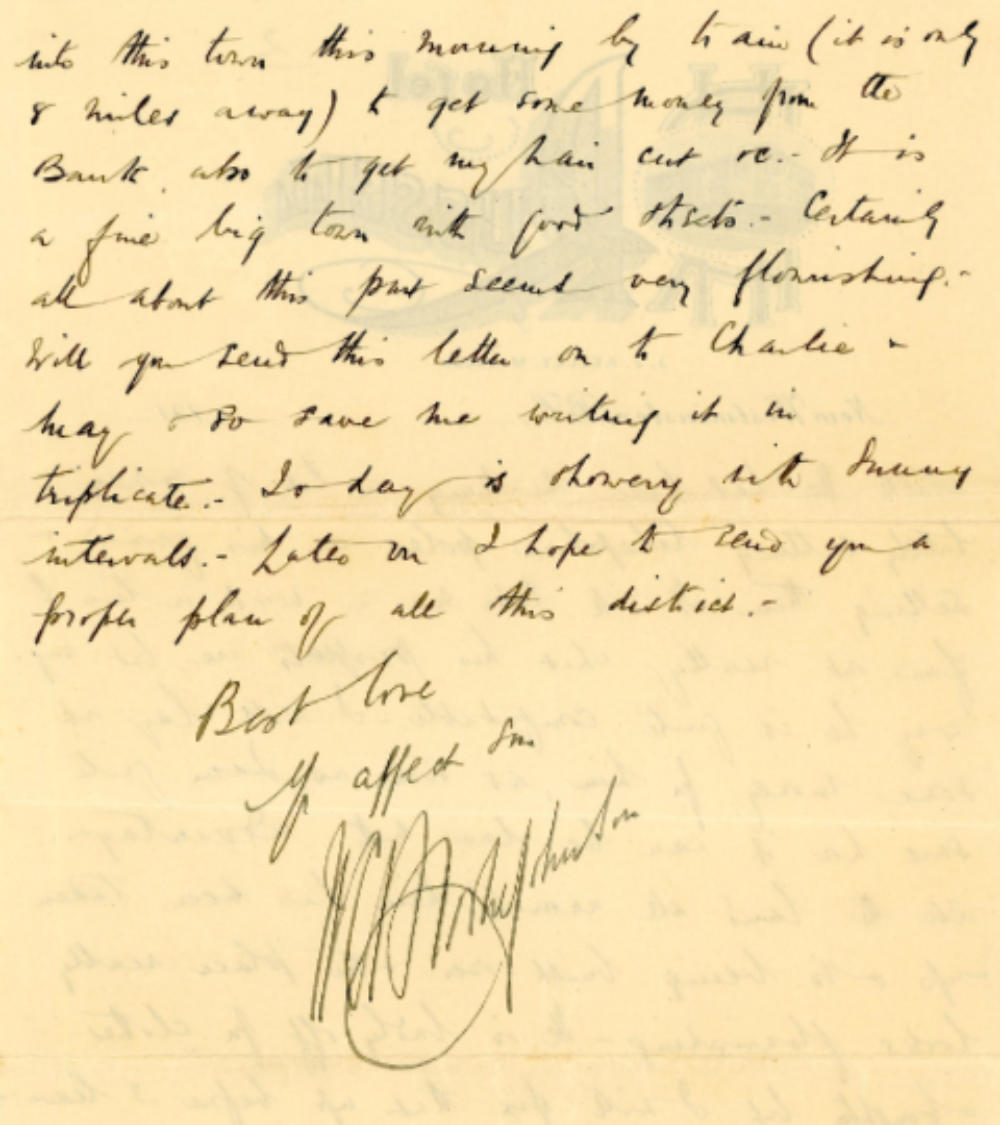 into this town this morning by train (it is only
8 miles away) to get some money from the
Bank, also to get my hair cut &c. - It is
a fine big town with good streets. - Certainly
all about this part seems very flourishing. -
Will you send this letter on to Charlie -
may & so save me writing it in
triplicate. - To day is showery with sunny
intervals. - Later on I hope to send you a
proper plan of all this district. -
Best love
Yr affect son